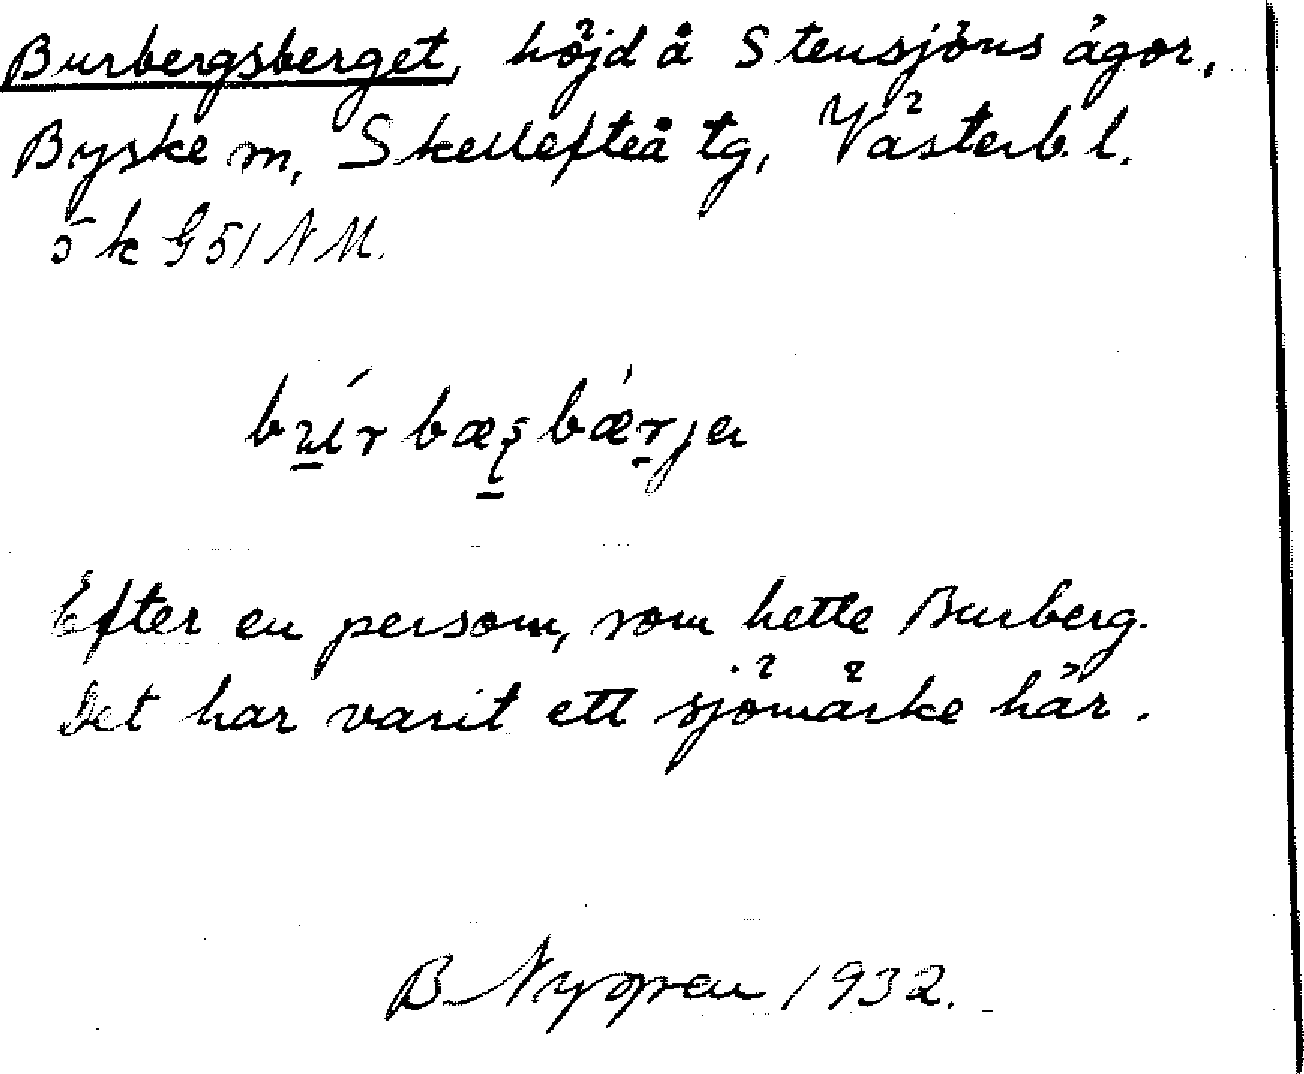 Burbergsberget, höjd å Stensjöns ägor,
Byske sn, Skellefteå tg, Västerb. l.
5 k G 51 NM.
bu̲ŕrbæs̨bǽrja
Efter en person, som hette Burberg.
Det har varit ett sjömärke här.
B. Nygren 1932.